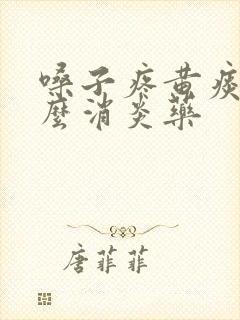 嗓子疼黄痰
麽消炎药
唐菲菲